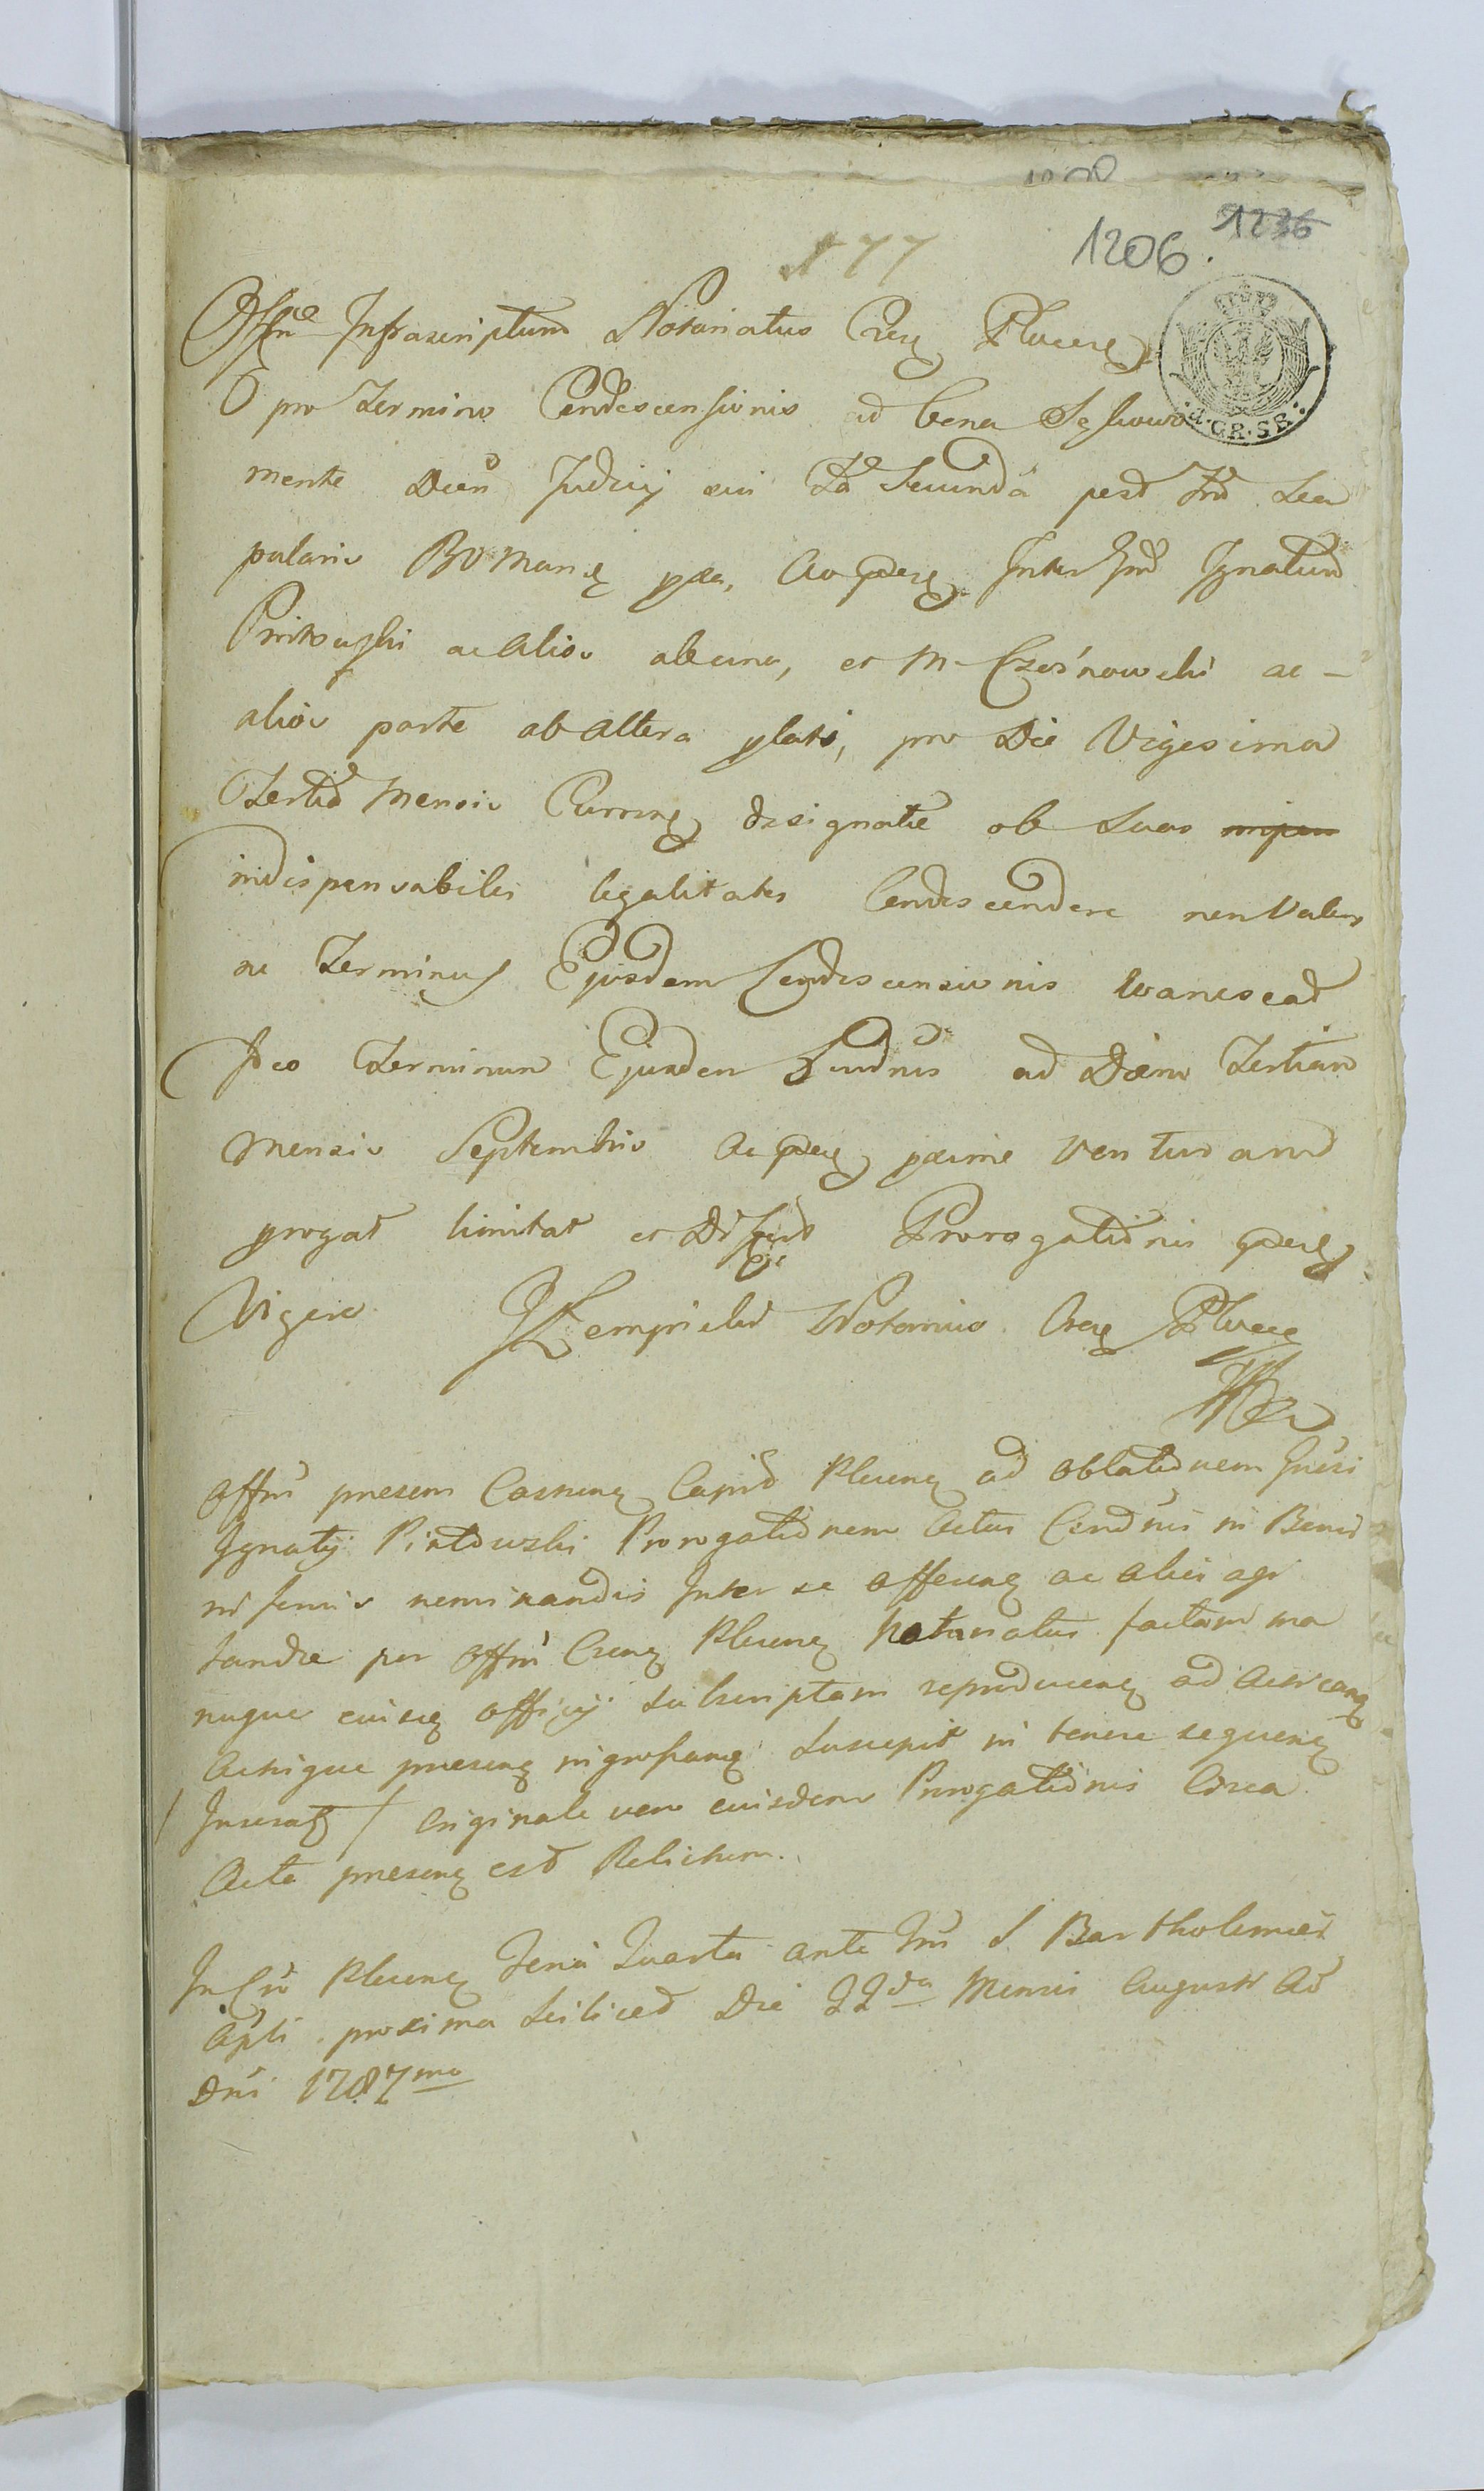 1206. 1236
177
Offm Infrascriptum Notariatus Cres Plocens
pro Termino Condescensionis ad bona
mente Decri Judicij sui Fa Secunda post Fm Sca
pularis B V Mariae pxa, Ao Inter Ignatum
Piotrowski ac alios ab una, et M. Czośnowski ac
alios parte ab altera plati, pro Die Vigesima
Tertia Mensis Curren designatae ob suas
indispensabiles legalitates Condescendere non Valens
ne Terminus Ejusdem Condescensionis evanescat
Ideo Terminum Ejusdem ad Diem Tertiam
mensis Septembris Ao pxime Venturam
progat limitat et Prorogationis
Vigere Notarius Cres Plocen
Offm praesens Castren Capit Plocen ad oblationem
Ignatij Piotrowski Prorogationem Actus Condnis in Bonis
inferius nominandis Inter se offeren ac alios agi
tandae per Offm Cren Plocen Notariatus factam ma
nuque eiusd Officij subscriptam reproducen ad acticand
Actisque praesen ingrossand Suscepit in tenore sequen
/ Inserat / Originale vero eiusdem Prorogationis Circa
Acta praesen est Relictum.
In Cro Plocen Feria Quarta ante Fm S. Bartholomaei
Apli proxima Scilicet Die 22da Mensis Augusti Ao
Dni 1787mo
G.GR.SR.